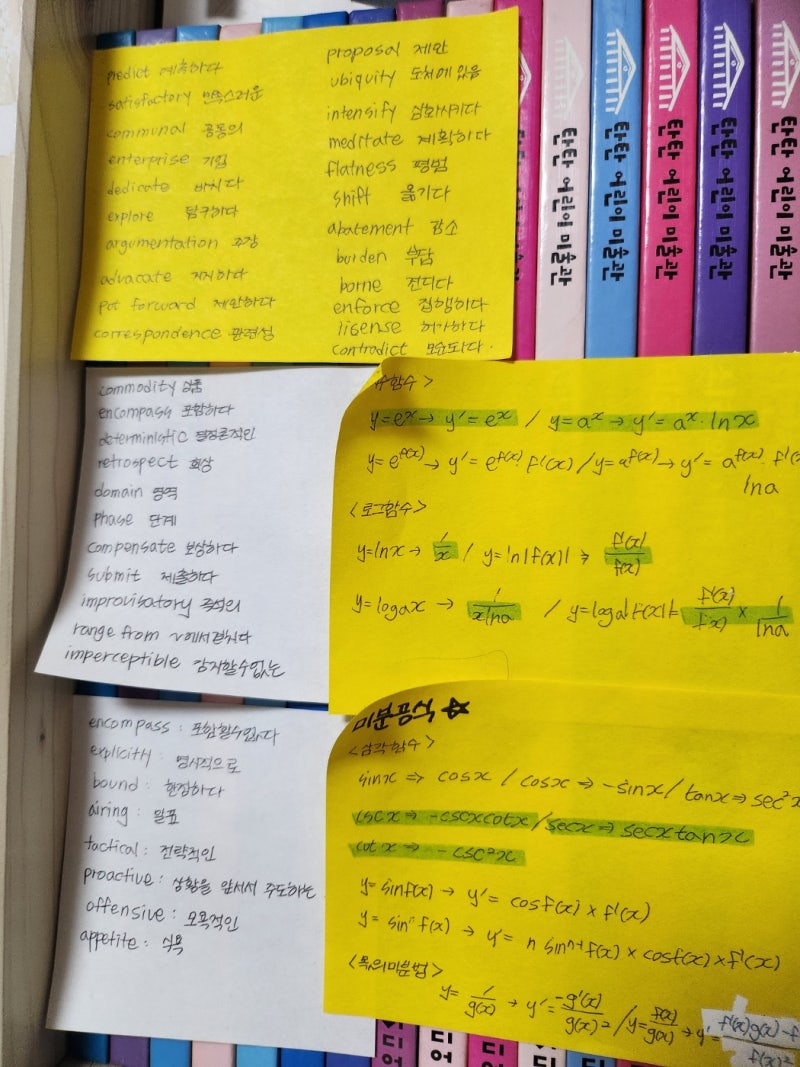 predict 예측하다
satisfactory 만족스러운
communal 공동의
enterprise 기업
dedicate 바치다
explore 탐구하다
argumentation 주장
advocate 지지하다
put forward 제안하다
correspondence 관련성
proposal 제안
ubiquity 도처에 있음
intensify 심화시키다
meditate 계획하다
flatness 평범
shift 옮기다
abatement 감소
burden 부담
borne 견디다
enforce 집행하다
lisense 허가하다
contradict 모순되다.
탄탄 어린이 미술관
탄탄 어린이 미술관
탄탄 어린이 미술관
탄탄 어린이 미술관
탄탄 어린이 미술관
commodity 상품
encompass 포함하다
deterministic 결정론적인
retrospect 회상
domain 영역
phase 단계
compensate 보상하다
submit 제출하다
improvisatory 즉석의
range from ~에서 걸치다
imperceptible 감지할수없는
함수>
y=eˣ → y'=eˣ / y=aˣ → y'=aˣ·lnx
y=e^f(x) → y'=e^f(x)·f'(x) / y=a^f(x) → y'=a^f(x)·f'(x
lna
<로그함수>
y=lnx → 1/x / y=ln|f(x)| ⇒ f'(x)/f(x)
y=logax → 1/xlna / y=loga|f(x)|= f'(x)/f(x) × 1/lna
encompass : 포함할수있다
explicitly : 명시적으로
bound : 한정하다
airing : 발표
tactical : 전략적인
proactive : 상황을 앞서서 주도하는
offensive : 모욕적인
appetite : 식욕
미분공식 ☆
<삼각함수>
sinx ⇒ cosx / cosx ⇒ -sinx / tanx ⇒ sec²x
cscx ⇒ -cscxcotx / secx ⇒ secxtanx
cotx ⇒ -csc²x
y=sinf(x) → y'=cosf(x)×f'(x)
y=sinⁿf(x) → y'=n sinⁿ⁻¹f(x)×cosf(x)×f'(x)
<몫의미분법>
y=1/g(x) → y'=-g'(x)/g(x)² / y=f(x)/g(x) → y'=f'(x)g(x)-f/f(x)²